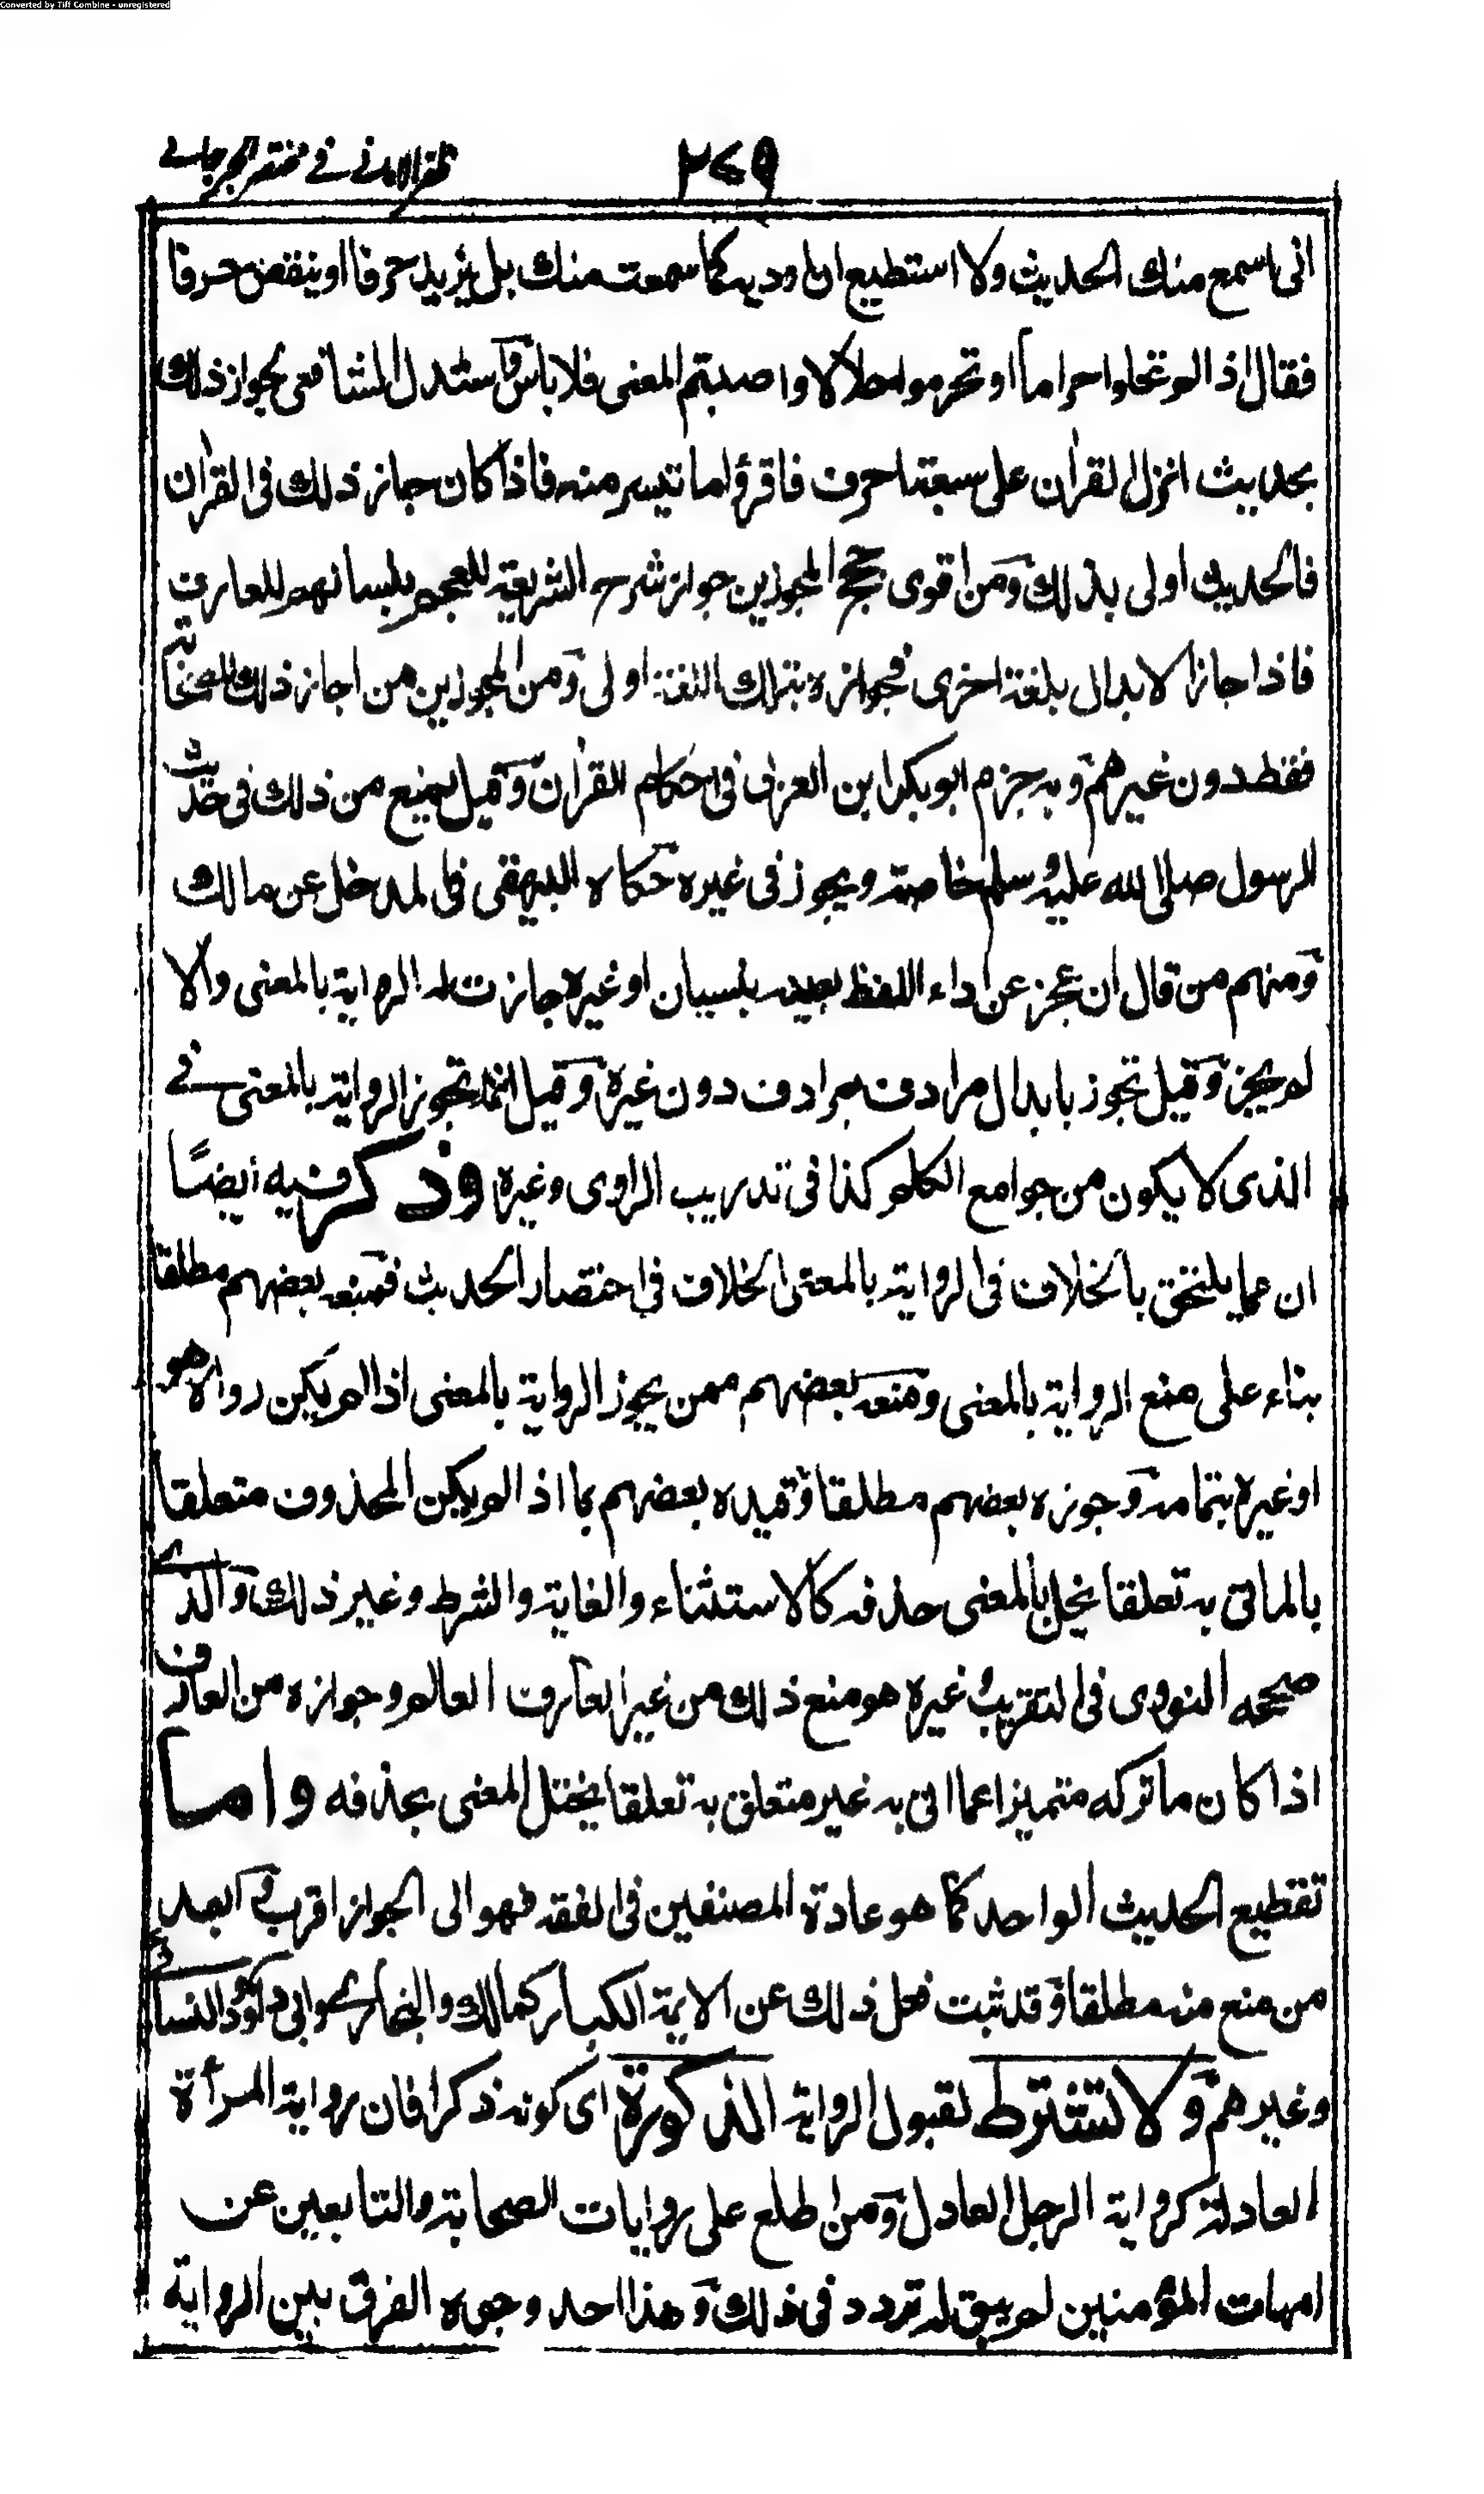 Converted by Tiff Combine - unregistered
٢٧٩
ظفر الامانى فے مختصر الجرجانے
انى اسمع منك الحديث ولا استطيع ان اوديه كما سمعت منك بل يزيد حرفا او ينقص حرفا
فقال اذا لم تحلوا حراماً او تحرموا حلالا واصبتم المعنى فلا بأس واستدل الشافعى لجواز ذلك
بحديث انزل القران على سبعة احرف فاقرؤا ما تيسر منه فاذا كان جاز ذلك فى القران
فالحديث اولى بذلك ومن اقوى حجج المجوزين جواز شرح الشريعة للعجم بلسانهم للعارف
فاذا جاز الابدال بلغة اخرى فجوازه بتلك اللغة اولى ومن المجوزين من اجاز ذلك للصحابة
فقط دون غيرهم وبه جزم ابو بكر ابن العربى فى احكام القران وقيل يمنع من ذلك فى حديث
الرسول صلى الله عليه وسلم خاصة ويجوز فى غيره حكاه البيهقى فى المدخل عن مالك
ومنهم من قال ان عجز عن اداء اللفظ بعينه بنسيان او غيره جازت له الرواية بالمعنى والا
لم يجز وقيل تجوز بابدال مرادف بمرادف دون غيره وقيل انما تجوز الرواية بالمعنى فے
الذى لا يكون من جوامع الكلم كذا فى تدريب الراوى وغيره وذكر فيه ايضًا
ان مما يلتحق بالخلاف فى الرواية بالمعنى الخلاف فى اختصار الحديث فمنعه بعضهم مطلقا
بناء على منع الرواية بالمعنى ومنعه بعضهم ممن يجوز الرواية بالمعنى اذا لم يكن رواه هو
او غيره بتمامه وجوزه بعضهم مطلقا وقيده بعضهم بما اذا لم يكن المحذوف متعلقا
بالماتى به تعلقا يخل بالمعنى حذفه كالاستثناء والغاية والشرط وغير ذلك والذے
صححه النووى فى التقريب وغيره هو منع ذلك من غير العارف العالم وجوازه من العارف
اذا كان ما تركه متميزا عما اتى به غير متعلق به تعلقا يختل المعنى بحذفه واما
تقطيع الحديث الواحد كما هو عادة المصنفين فى الفقه فهو الى الجواز اقرب وابعد
من منع منه مطلقا وقد ثبت فعل ذلك عن الاية الكبار كمالك والبخارى وابى داؤد والنسائے
وغيرهم ولا تشترط لقبول الرواية الذكورة اى كونه ذكرا فان رواية المرأة
العادلة كرواية الرجل العادل ومن اطلع على روايات الصحابة والتابعين عن
امهات المؤمنين لم يبق له تردد فى ذلك وهذا احد وجوه الفرق بين الرواية